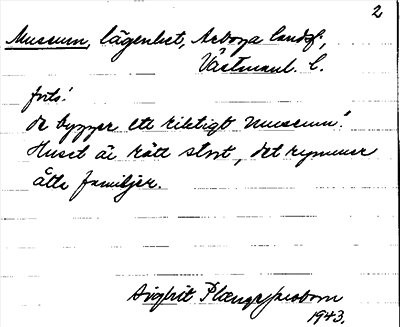 2
Museum, lägenhet, Arboga landsf.,
Västmanl. l.
forts.
de bygger ett riktigt museum".
Huset är rätt stort, det rymmer
åtta familjer.
Sigbrit Plænge Jacobson
1943.